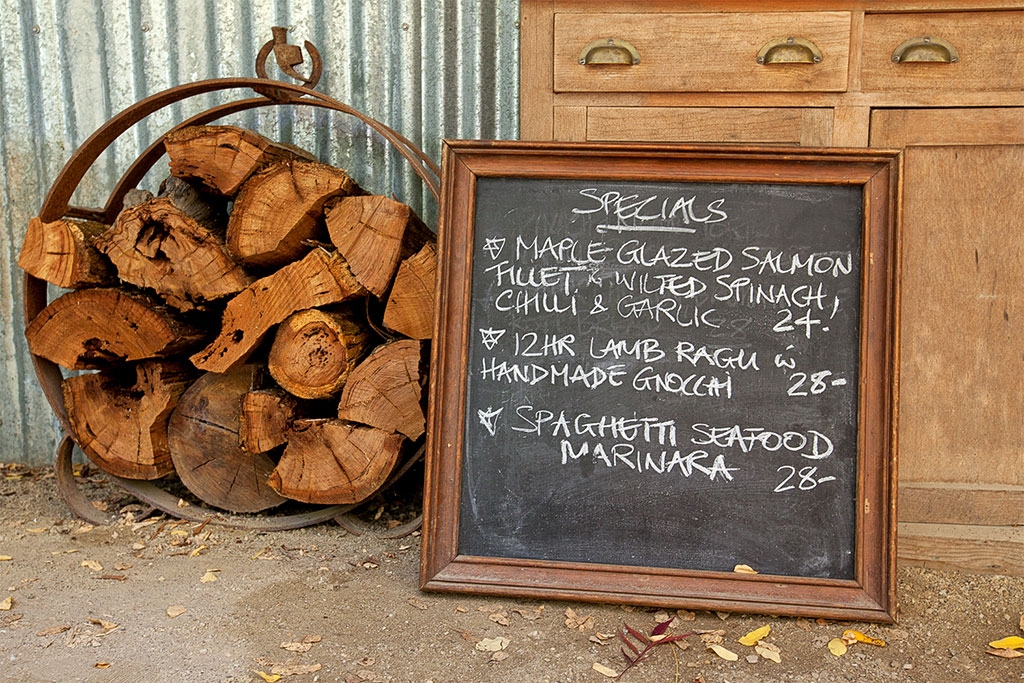 SPECIALS
MAPLE GLAZED SALMON
FILLET & WILTED SPINACH,
CHILLI & GARLIC 24.
12HR LAMB RAGU w
HANDMADE GNOCCHI 28-
SPAGHETTI SEAFOOD
MARINARA 28-